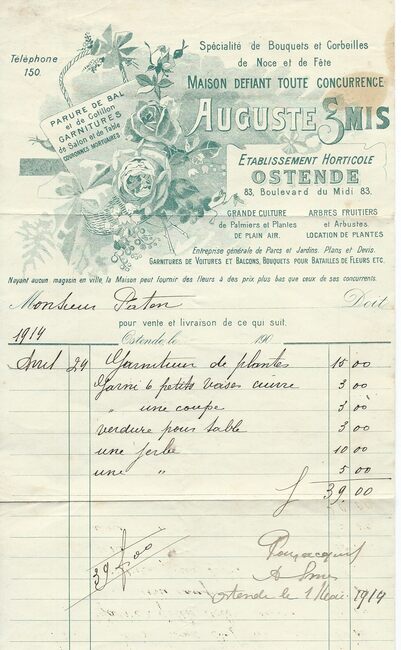 Téléphone
150.
Spécialité de Bouquets et Corbeilles
de Noce et de Fête
MAISON DEFIANT TOUTE CONCURRENCE
AUGUSTE SMIS
PARURE DE BAL
et de Cotillon
GARNITURES
de Salon et de Table
COURONNES MORTUAIRES
ETABLISSEMENT HORTICOLE
OSTENDE
83, Boulevard du Midi 83.
GRANDE CULTURE
de Palmiers et Plantes
DE PLEIN AIR.
ARBRES FRUITIERS
et Arbustes
LOCATION DE PLANTES
Entreprise générale de Parcs et Jardins. Plans et Devis.
GARNITURES DE VOITURES ET BALCONS, BOUQUETS POUR BATAILLES DE FLEURS ETC.
Nayant aucun magasin en ville, la Maison peut fournir des fleurs à des prix plus bas que ceux de ses concurrents.
Monsieur Doit
pour vente et livraison de ce qui suit.
1914 Ostende le 190
Avril 24 Garniture de plantes 15 00
Garni 6 petits vases cuivre 3 00
" une coupe 3 00
verdure pour table 3 00
une gerbe 10 00
une " 5 00
f 39.00
39 f 00
Pour acquit
A Smis
Ostende le 1 Mai 1914